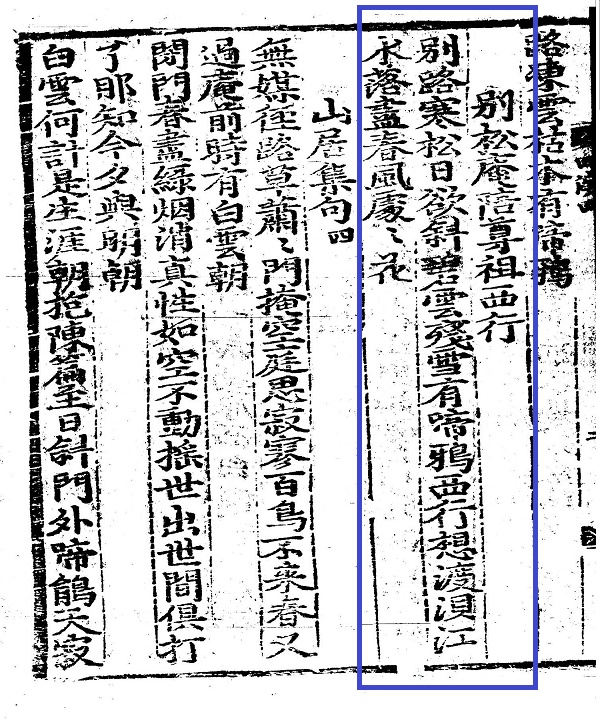 路凍雲枯木有啼鴉
别松庵陪尊祖西行
别路寒松日欲斜碧雲殘雪有啼鴉西行想渡浿江
水落盡春風處〻花
山居集句四
無媒徑路草蕭〻門掩空庭思寂寥百鳥不來春又
過庵前時有白雲朝
閉門春盡綠烟消真性如空不動搖世出世間俱打
了那知今夕與明朝
白雲何計是生涯朝抱陳篇至日斜門外啼鵑天寂